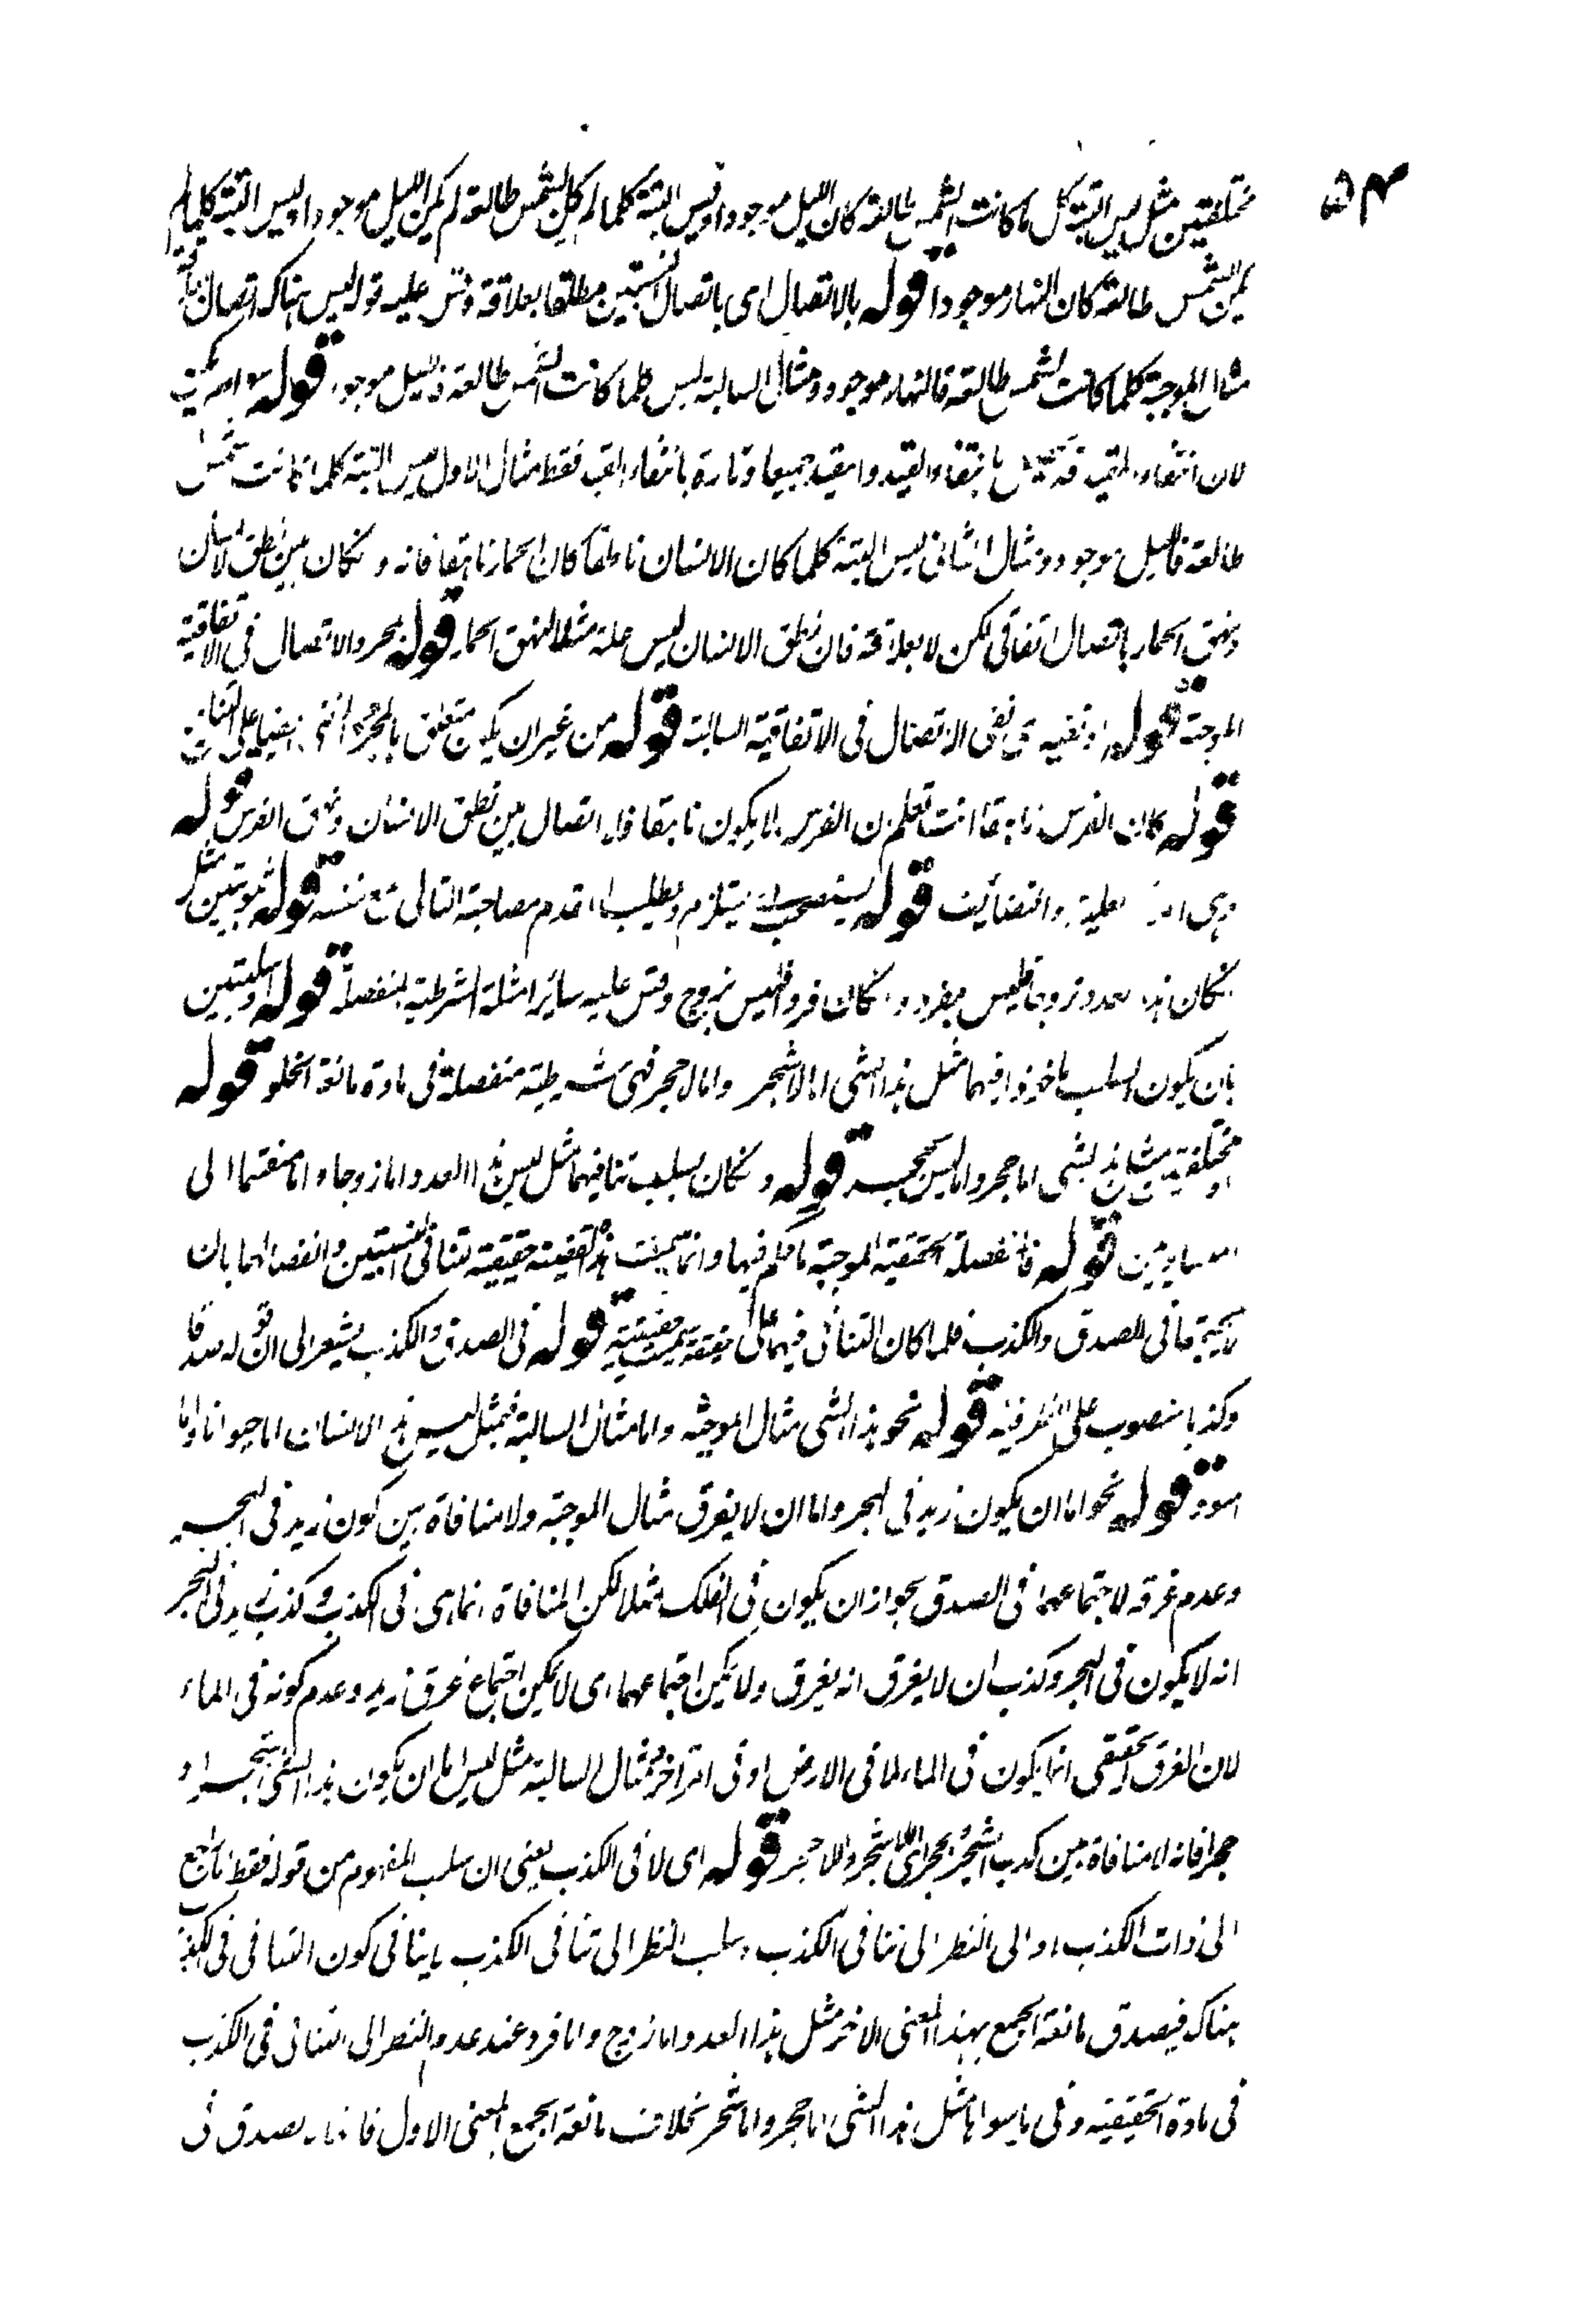 ٥٤
مختلفتين مثل ليس البتة كل ما كانت الشمس طالعة كان الليل موجودا وليس البتة كلما لم تكن الشمس طالعة لم يكن الليل موجودا وليس البتة كلما لم
تكن الشمس طالعة كان النهار موجودا قوله بالاتصال اى باتصال النسبتين مطلقا بعلاقة وقس عليه قوله ليس هناك اتصال
مثال الموجبة كلما كانت الشمس طالعة فالنهار موجود ومثال السالبة ليس كلما كانت الشمس طالعة فالليل موجود قوله سواء لم يكن
لان انتفاء المقيد قد بانتفاء القيد والمقيد جميعا وتارة بانتفاء القيد فقط مثال الاول ليس البتة كلما كانت الشمس
طالعة فالليل موجود ومثال الثانى ليس البتة كلما كان الانسان ناطقا كان الحمار ناهقا فانه وان كان بين نطق الانسان
ونهق الحمار اتصال اتفاقى لكن لا بعلاقة فان نطق الانسان ليس علة مثلا لنهق الحمار قوله بمجرد الاتصال فى الاتفاقية
الموجبة قوله او نفيه اى نفى الاتصال فى الاتفاقية السالبة قوله من غير ان يكون متعلق بالمجرد
قوله كان الفرس ناهقا انت تعلم ان الفرس لا يكون ناهقا فلا اتصال بين نطق الانسان ونهق الفرس قوله
وهى العلية والتضايف قوله يستصحب اى يستلزم ويطلب المقدم مصاحبة التالى مع نفسه قوله ثبوتيتين مثل
ان كان هذا العدد زوجا فليس بفرد وان كان فردا فليس بزوج وقس عليه سائر امثلة الشرطية المنفصلة قوله او سلبيتين
بان يكون السلب ماخوذا فيهما مثل هذا الشى اما لا شجر واما لا حجر فهى شرطية منفصلة فى مادة مانعة الخلو قوله
او مختلفتين مثل هذا الشى اما حجر واما ليس بحجر قوله وان كان بسلب تنافيهما مثل ليس هذا العدد اما زوجا واما منقسما الى
المتساويين قوله فالمنفصلة الحقيقية الموجبة ما حكم فيها وانما سميت هذه القضية حقيقية تنافى النسبتين وانفصالهما بان
لا يجتمعا فى الصدق والكذب فلما كان التنافى فيهما على حقيقة سميت حقيقية قوله فى الصدق والكذب يشير الى ان قوله صدقا
وكذبا منصوب على الظرفية قوله نحو هذا الشى مثال الموجبة واما مثال السالبة فمثل ليس هذا الانسان اما حيوانا واما
اسود قوله نحو اما ان يكون زيد فى البحر واما ان لا يغرق مثال الموجبة ولا منافاة بين كون زيد فى البحر
وعدم غرقه لاجتماعهما فى الصدق بجواز ان يكون فى الفلك مثلا لكن المنافاة انما هى فى الكذب وكذب زيد فى البحر
انه لا يكون فى البحر وكذب ان لا يغرق انه يغرق ولا يمكن اجتماعهما اى لا يمكن اجتماع غرق زيد وعدم كونه فى الماء
لان الغرق الحقيقى انما يكون فى الماء لا فى الارض او فى امر اخر ومثال السالبة مثل ليس اما ان يكون هذا الشى شجرا او
حجرا فانه لا منافاة بين كذب الشجر والحجر اى اللاشجر واللاحجر قوله اى لا فى الكذب يعنى ان سلب المفهوم من قوله فقط راجع
الى ذات الكذب او الى النظر الى تنافى الكذب وسلب النظر الى تنافى الكذب لا ينافى كون التنافى فى الكذب
هناك فيصدق مانعة الجمع بهذا المعنى الاخر مثل هذا العدد اما زوج واما فرد عند عدم النظر الى التنافى فى الكذب
فى مادة الحقيقية وفى ما سواها مثل هذا الشى اما حجر واما شجر بخلاف مانعة الجمع بالمعنى الاول فانها لا تصدق فى